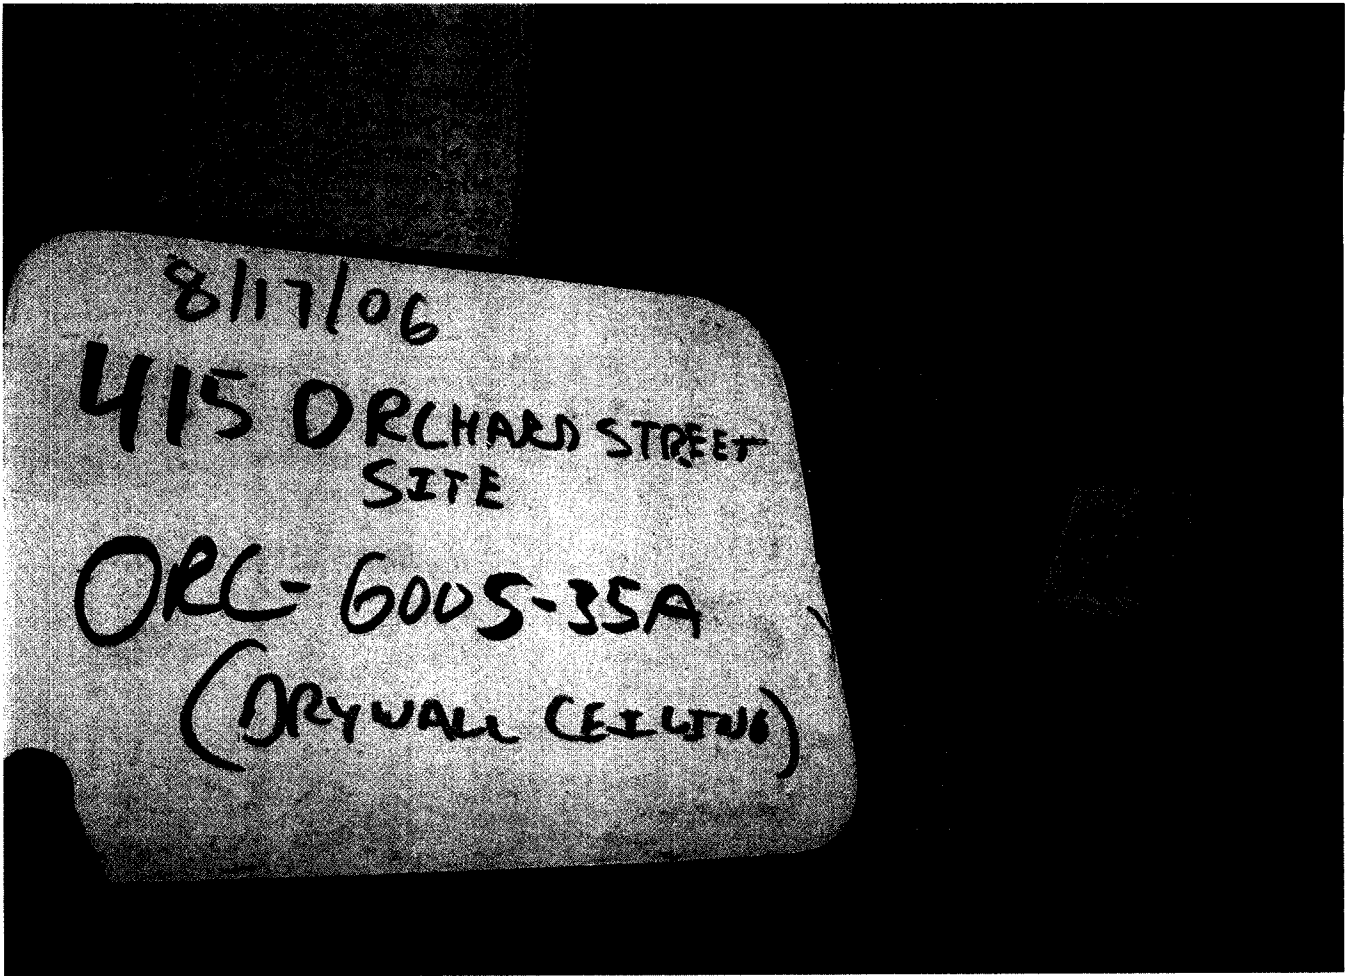 8/17/06
415 ORCHARD STREET
SITE
ORC-6005-35A
(DRYWALL CEILING)